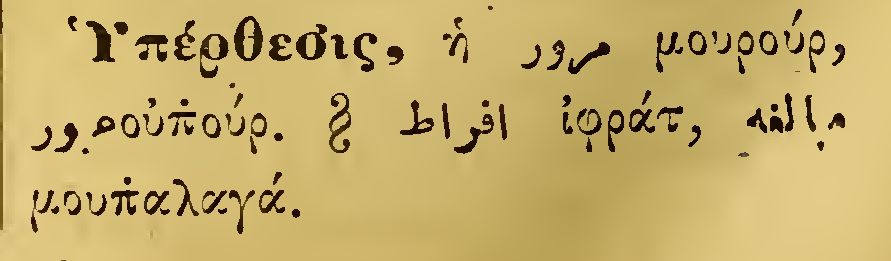 Ὑπέρθεσις, ἡ مرور μουρούρ,
عبور οὐπ̇ούρ. § افراط ἰφράτ, مبالغه
μουπ̇αλαγά.